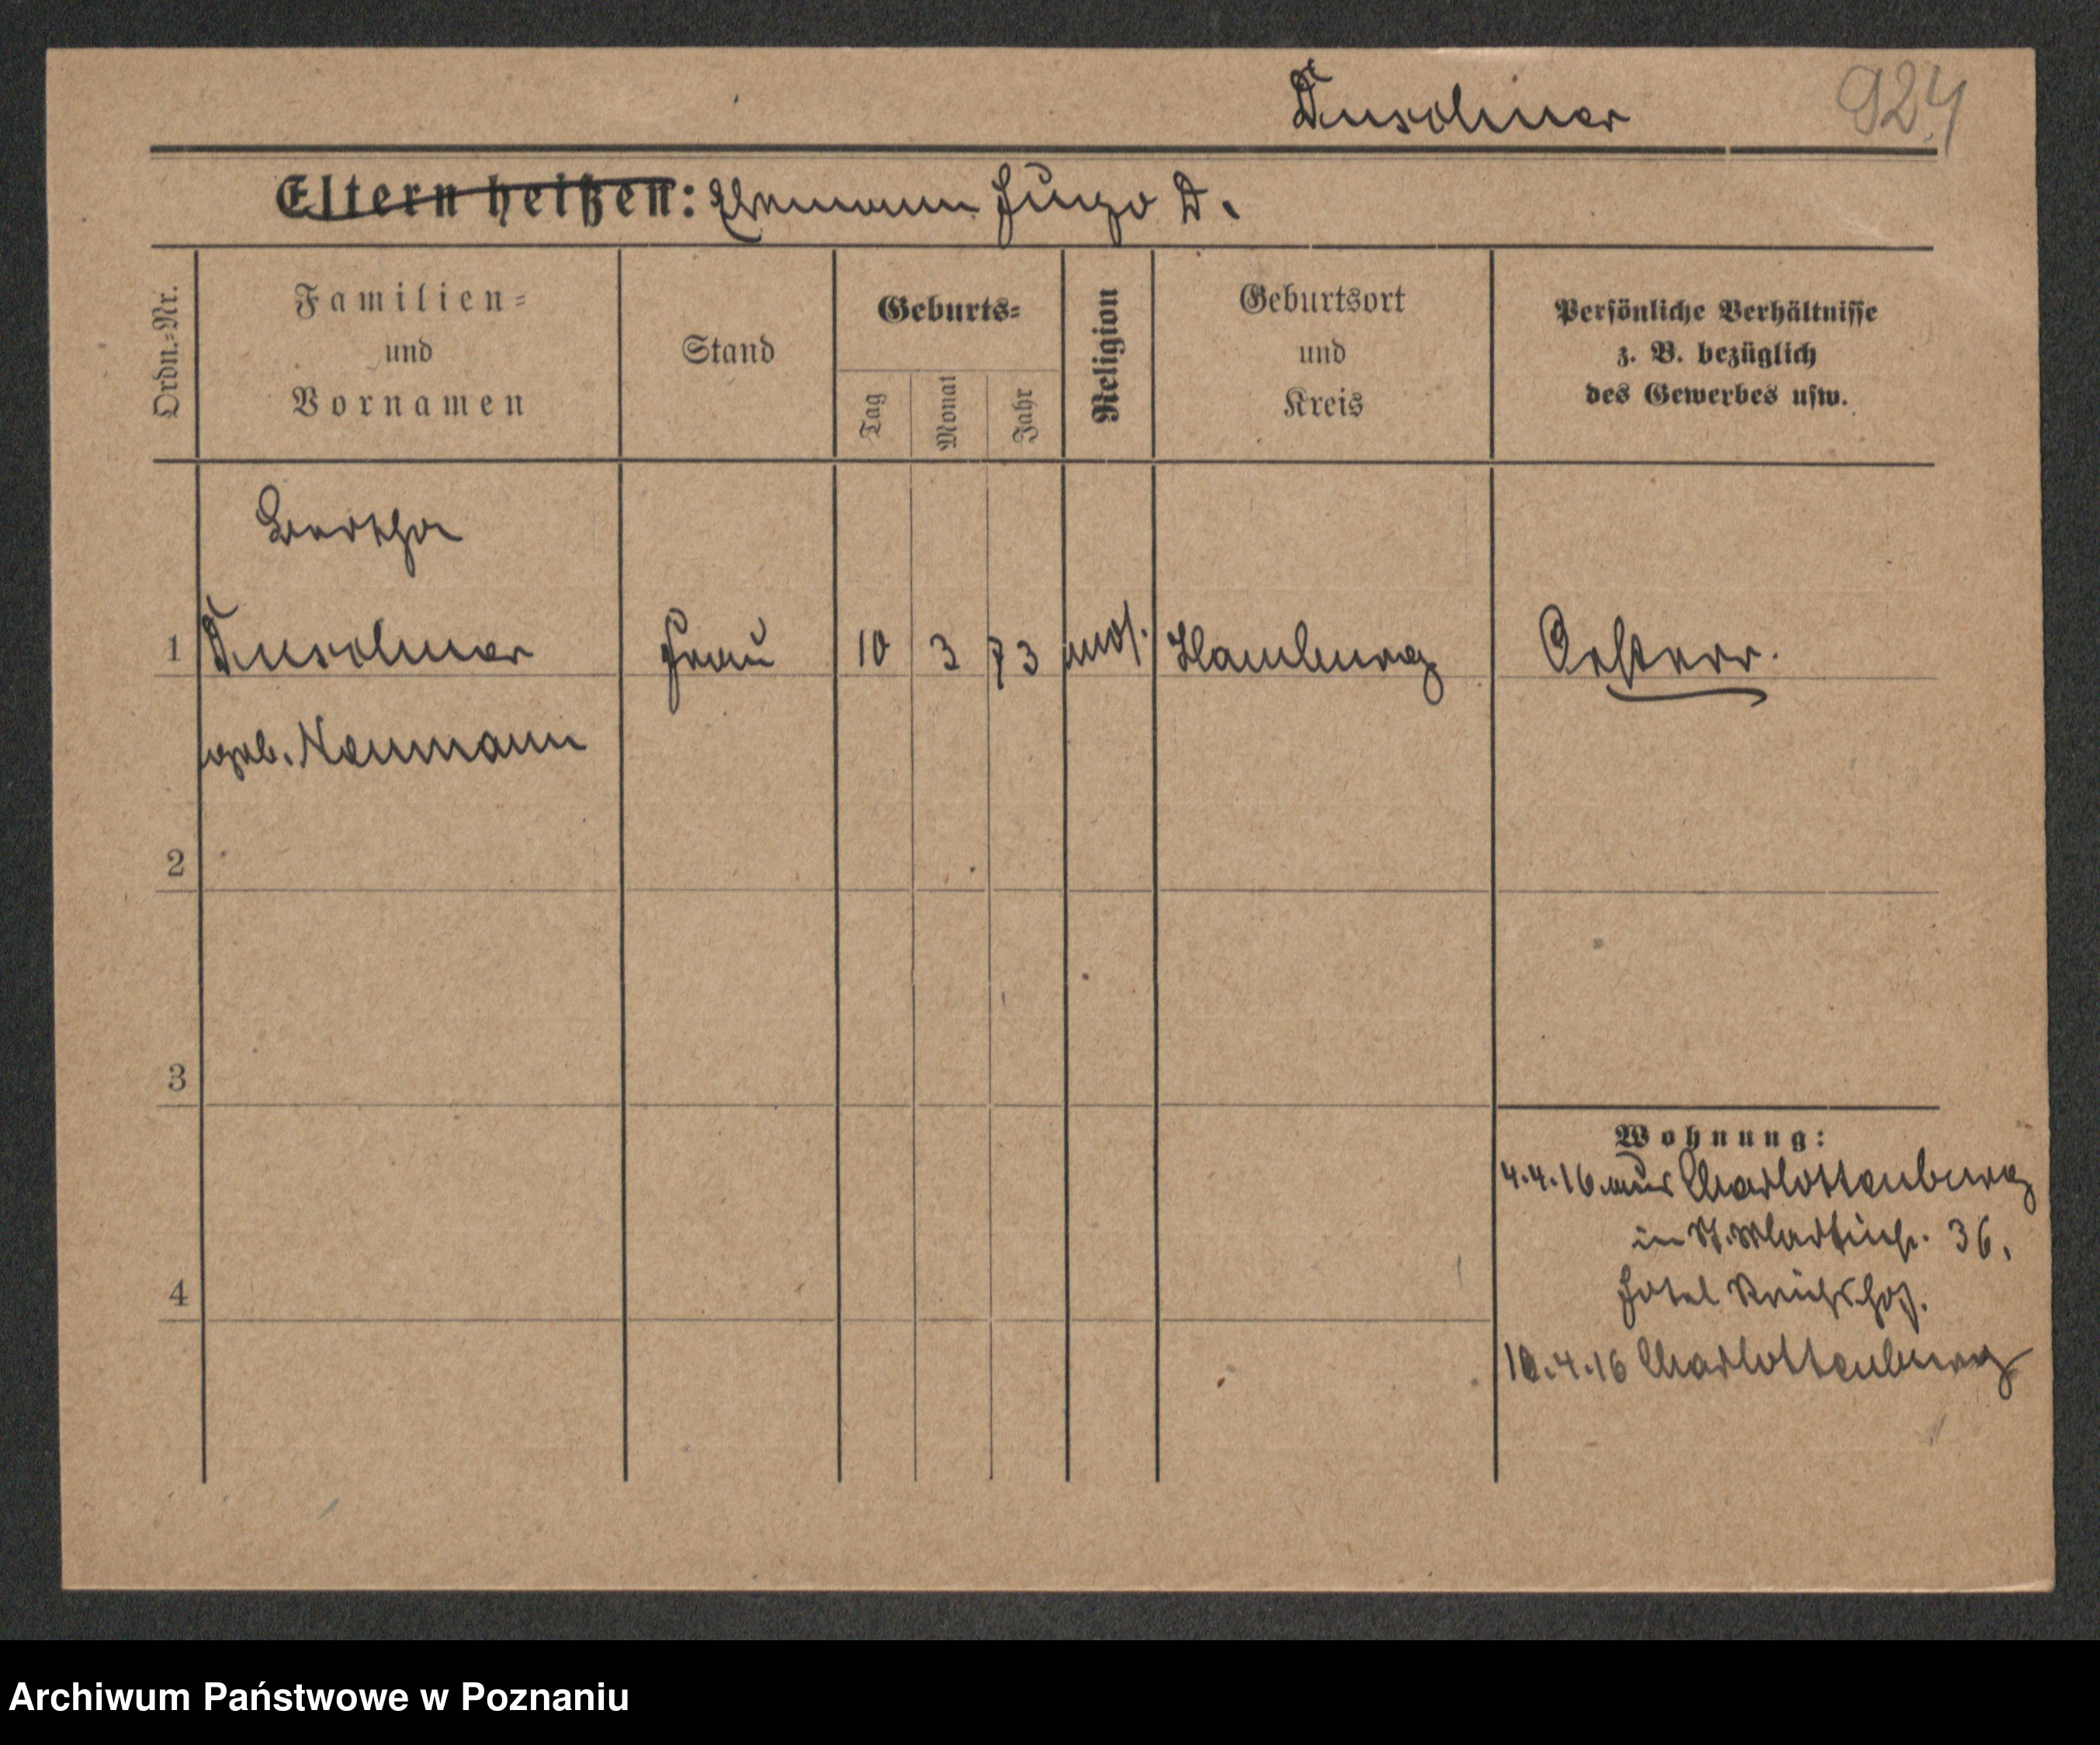 924
Eltern heißen: Ehemann Hugo D.
Ordn.=Nr.
Familien=
und
Vornamen
Stand
Geburts=
Tag
Monat
Jahr
Religion
Geburtsort
und
Kreis
Persönliche Verhältnisse
z. B. bezüglich
des Gewerbes usw.
Bertha
1 Frau 10 3 73 Hamburg Oesterr.
geb. Naumann
2
3
4
Wohnung:
4.4.16 aus Charlottenburg
in St. Martinstr. 36,
Hotel Reichshof.
10.4.16 Charlottenburg
Archiwum Państwowe w Poznaniu